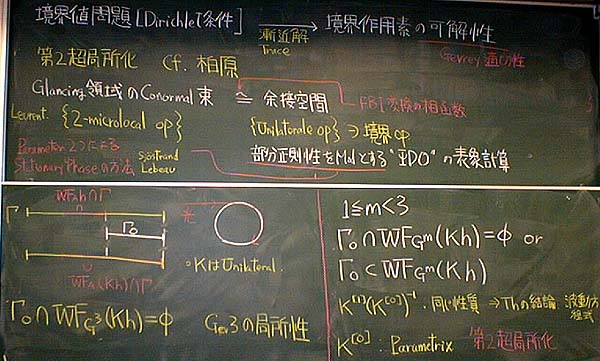 境界値問題 [Dirichlet条件] 漸近解 Trace → 境界作用素の可解性
Gevrey 適切性
第2超局所化 cf. 柏原
Glancing領域のConormal束 ≃ 余接空間
FBI変換の相函数
Laurent. {2-microlocal op} {Unilaterale op} ∋ 境界op
Parameter 2つによる
Stationary Phaseの方法 Sjöstrand Lebeau
部分正則性をMidとする "ΨDO" の表象計算
∩Γ
Γ
Γ₀
光
WF_A(Kh)∩Γ
∘ KはUnilateral.
Γ₀∩WF_G³(Kh)=φ Gev3の局所性
1≦m<3
Γ₀∩WF_Gᵐ(Kh)=φ or
Γ₀⊂WF_Gᵐ(Kh)
(K^[0])⁻¹ 同じ性質 ⇒ Thの結論 波動方程式
K^[0]: Parametrix 第2超局所化